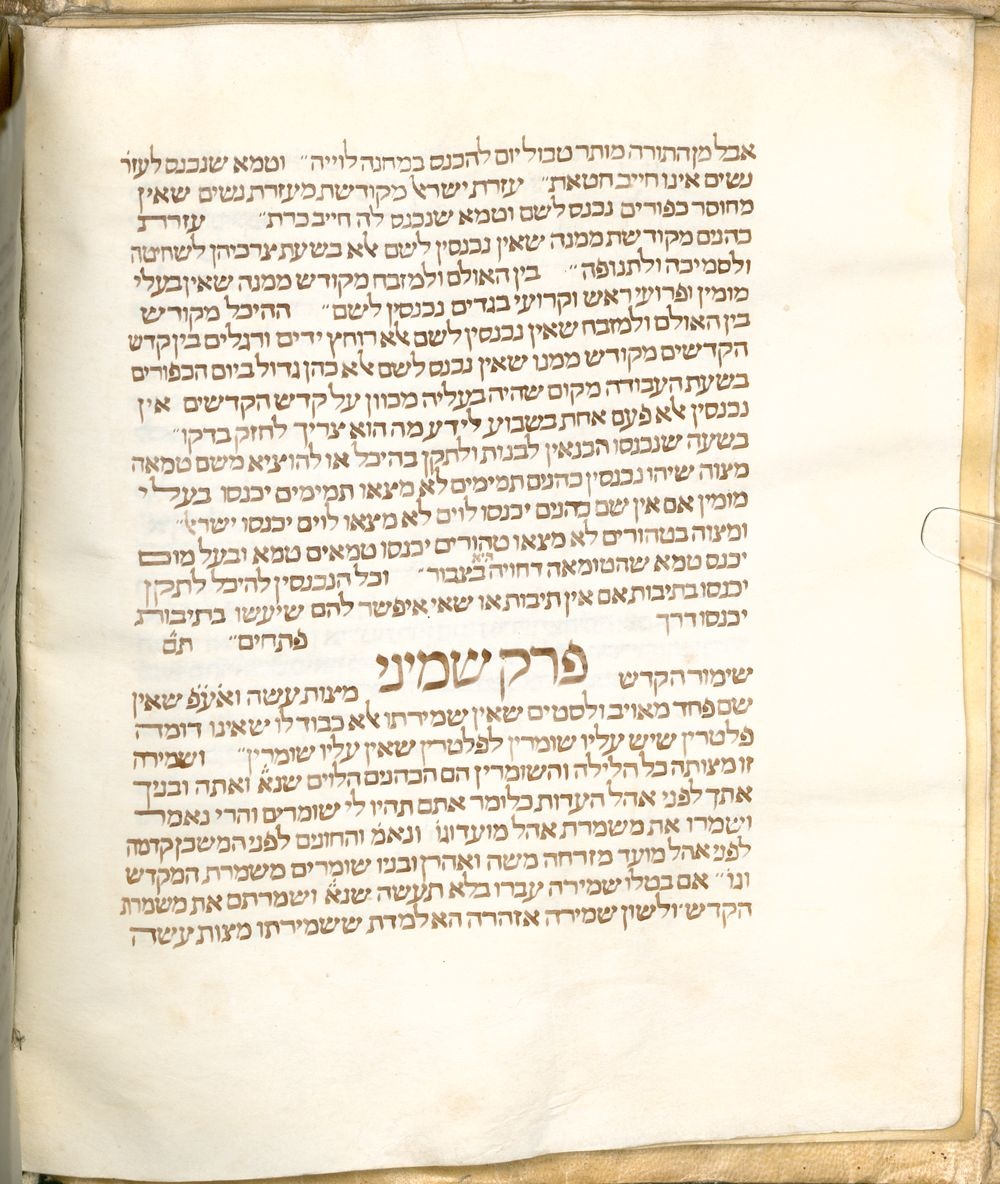 אבל מן התורה מותר טבול יום להכנס במחנה לוייה״ וטמא שנכנס לעזר׳
נשים אינו חייב חטאת״ עזרת ישרא׳ מקודשת מעזרת נשים שאין
מחוסר כפורים נכנס לשם וטמא שנכנס לה חייב כרת״ עזרת
כהנים מקודשת ממנה שאין נכנסין לשם אלא בשעת צרכיהן לשחיטה
ולסמיכה ולתנופה״ בין האולם ולמזבח מקודש ממנה שאין בעלי
מומין ופרועי ראש וקרועי בגדים נכנסין לשם״ ההיכל מקודש
בין האולם ולמזבח שאין נכנסין לשם אלא רוחץ ידים ורגלים בין קדש
הקדשים מקודש ממנו שאין נכנס לשם אלא כהן גדול ביום הכפורים
בשעת העבודה מקום שהיה בעליה מכוון על קדש הקדשים אין
נכנסין אלא פעם אחת בשבוע לידע מה הוא צריך לחזק בדקו״
בשעה שנכנסו הבנאין לבנות ולתקן בהיכל או להוציא משם טמאה
מצוה שיהו נכנסין כהנים תמימים לא מצאו תמימים יכנסו בעלי
מומין אם אין שם כהנים יכנסו לוים לא מצאו לוים יכנסו ישראל״
ומצוה בטהורים לא מצאו טהורים יכנסו טמאים טמא ובעל מום
יכנס טמא שהטומאה דחויה היא בצבור״ וכל הנכנסין להיכל לתקן
יכנסו בתיבות אם אין תיבות או שאי איפשר להם שיעשו בתיבות
יכנסו דרך פתחים״ תם
פרק שמיני
שימור הקדש מצות עשה ואע״פ שאין
שם פחד מאויב ולסטים שאין שמירתו אלא כבוד לו שאינו דומה
פלטרין שיש עליו שומרין לפלטרין שאין עליו שומרין״ ושמירה
זו מצותה כל הלילה והשומרין הם הכהנים הלוים שנא׳ ואתה ובניך
אתך לפני אהל העדות כלומר אתם תהיו לי שומרים והרי נאמר
ושמרו את משמרת אהל מועד וגו׳ ונאמ׳ והחונים לפני המשכן קדמה
לפני אהל מועד מזרחה משה ואהרן ובניו שומרים משמרת המקדש
וגו׳״ אם בטלו שמירה עברו בלא תעשה שנא׳ ושמרתם את משמרת
הקדש ולשון שמירה אזהרה הא למדת ששמירתו מצות עשה